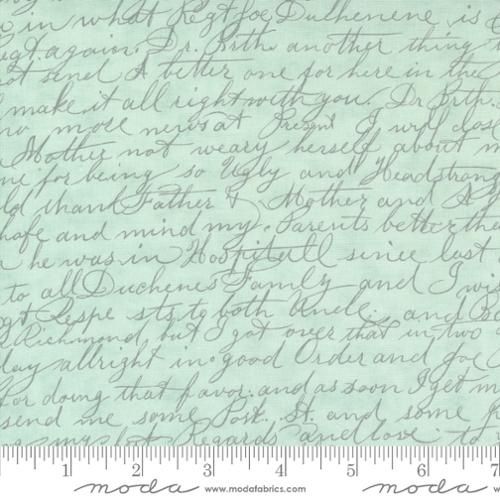 in what Regt Joe Duchenene is
Regt again. Dr. Brth. another thing
not send A better one for here in the
make it all right with you. Dr Brther
no more news at Present I will close
Mother not weary herself about m
me for being so Ugly and Headstrong
ld thank Father & Mother and A
hafe and mind my. Parents better tha
he was in Hospitull since last
to all Duchenes Family and I wis
gt Respe sts to both Uncle. and
Richmond but I got over that in two
day allright in good Order and Joe
for doing that favor. and as soon I get m
send me some Post. St. and some
my best Regards and love to
1 2 3 4 5 6 7
moda www.modafabrics.com moda